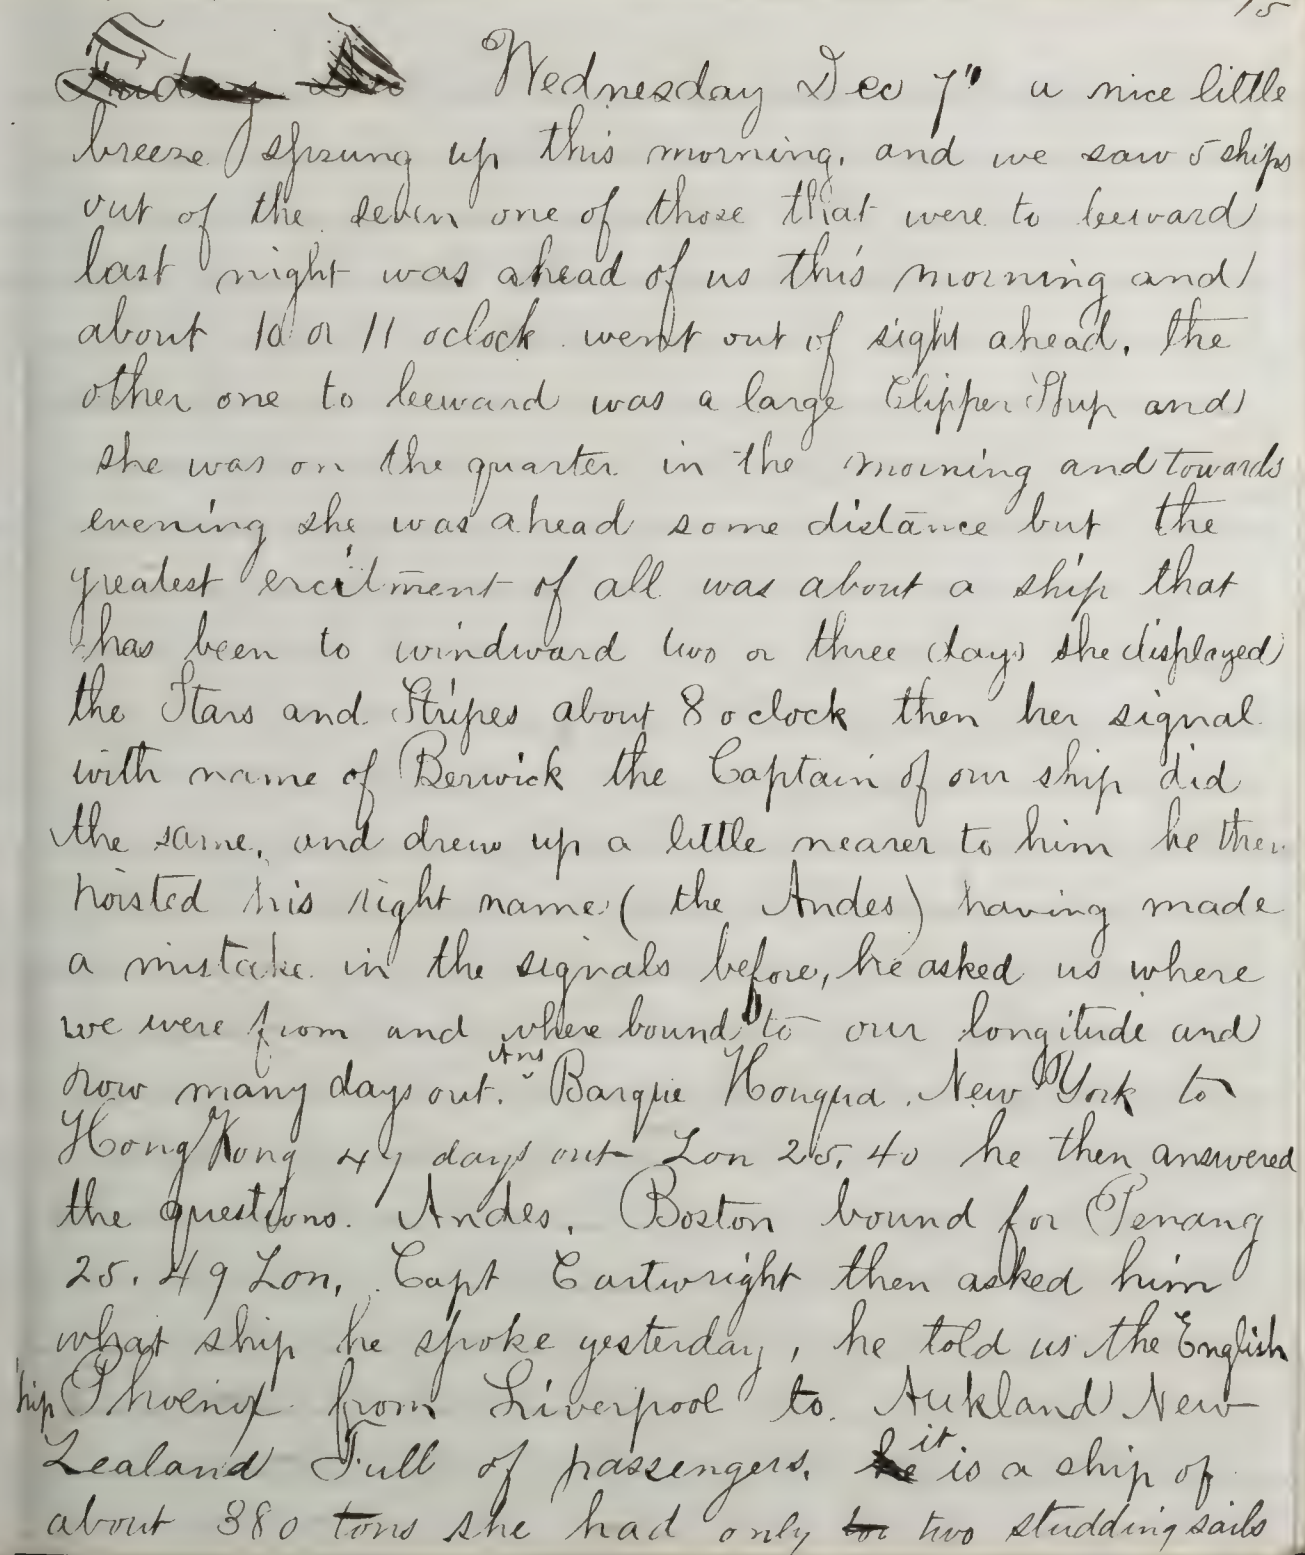 15
Wednesday Dec 7" a nice little
breeze sprung up this morning, and we saw 5 ships
out of the seven one of those that were to leeward
last night was ahead of us this morning and
about 10 or 11 oclock went out of sight ahead, the
other one to leeward was a large Clipper Ship and
she was on the quarter in the morning and towards
evening she was ahead some distance but the
greatest excitment of all was about a ship that
has been to windward two or three days she displayed
the Stars and Stripes about 8 oclock then her signal
with name of Berwick the Captain of our ship did
the same, and drew up a little nearer to him he then
hoisted his right name (the Andes) having made
a mistake in the signals before, he asked us where
we were from and where bound to our longitude and
how many days out. Ans Barque Houqua. New York to
Hong Kong 47 days out Lon 25.40 he then answered
the questions. Andes, Boston bound for Penang
25.49 Lon, Capt Cartwright then asked him
what ship he spoke yesterday, he told us the English
ship Phoenix from Liverpool to Aukland New
Zealand Full of passengers. he it is a ship of
about 380 tons she had only two studding sails